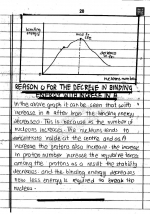 28
binding energy
most stable
nucleons number
REASON FOR THE DECREASE IN BINDING
ENERGY WITH INCREASE IN A
In the above graph it can be seen that with
increase in A after iron the binding energy
decreases. This is because as the number of
nucleons increases. The nucleons tends to
concentrate inside at the centre and as A
increase the protons also increase. the increase
in proton number increase the repulsive force
among the protons as a result the stability
decreases, and the binding energy decreases
now less energy is required to break the
nucleus.